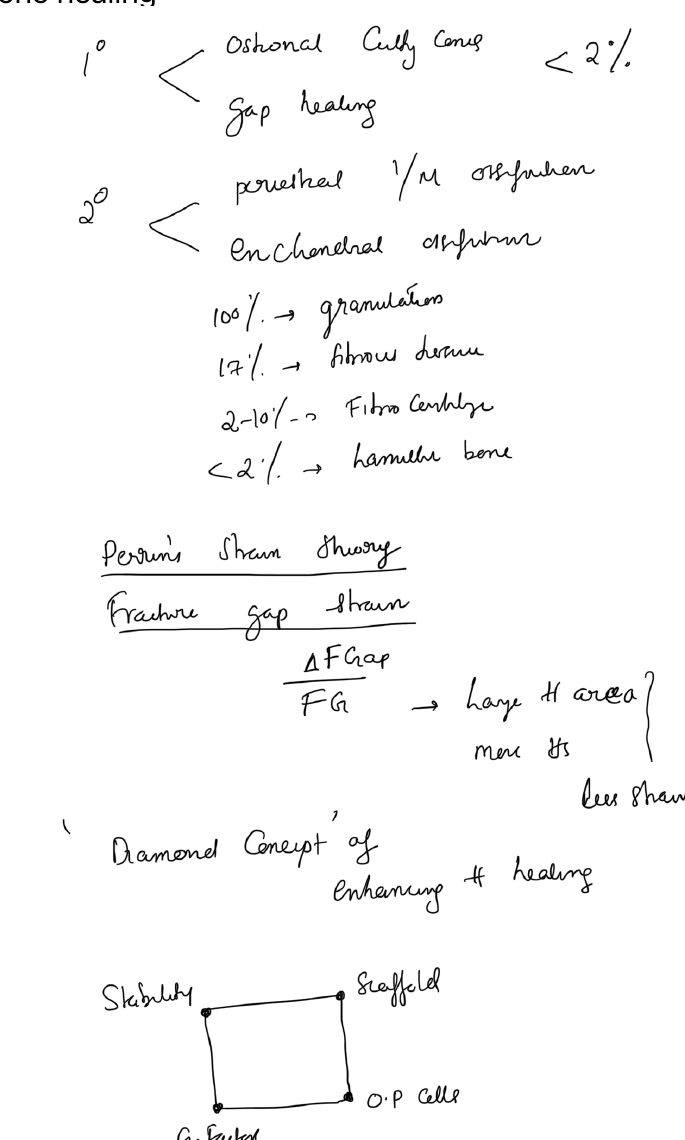 one healing
1° < Osteonal Cutty Cones < 2%
Gap healing
2° < periosteal I/M ossification
enchondral ossification
100% → granulation
17% → fibrous tissue
2-10% → Fibro Cartilage
<2% → lamellar bone
Perren's Strain theory
Fracture gap strain
ΔFGap
FG → Large # area
more #s
less strain
'Diamond Concept' of
enhancing # healing
Stability Scaffold
O.P Cells
G. Factor